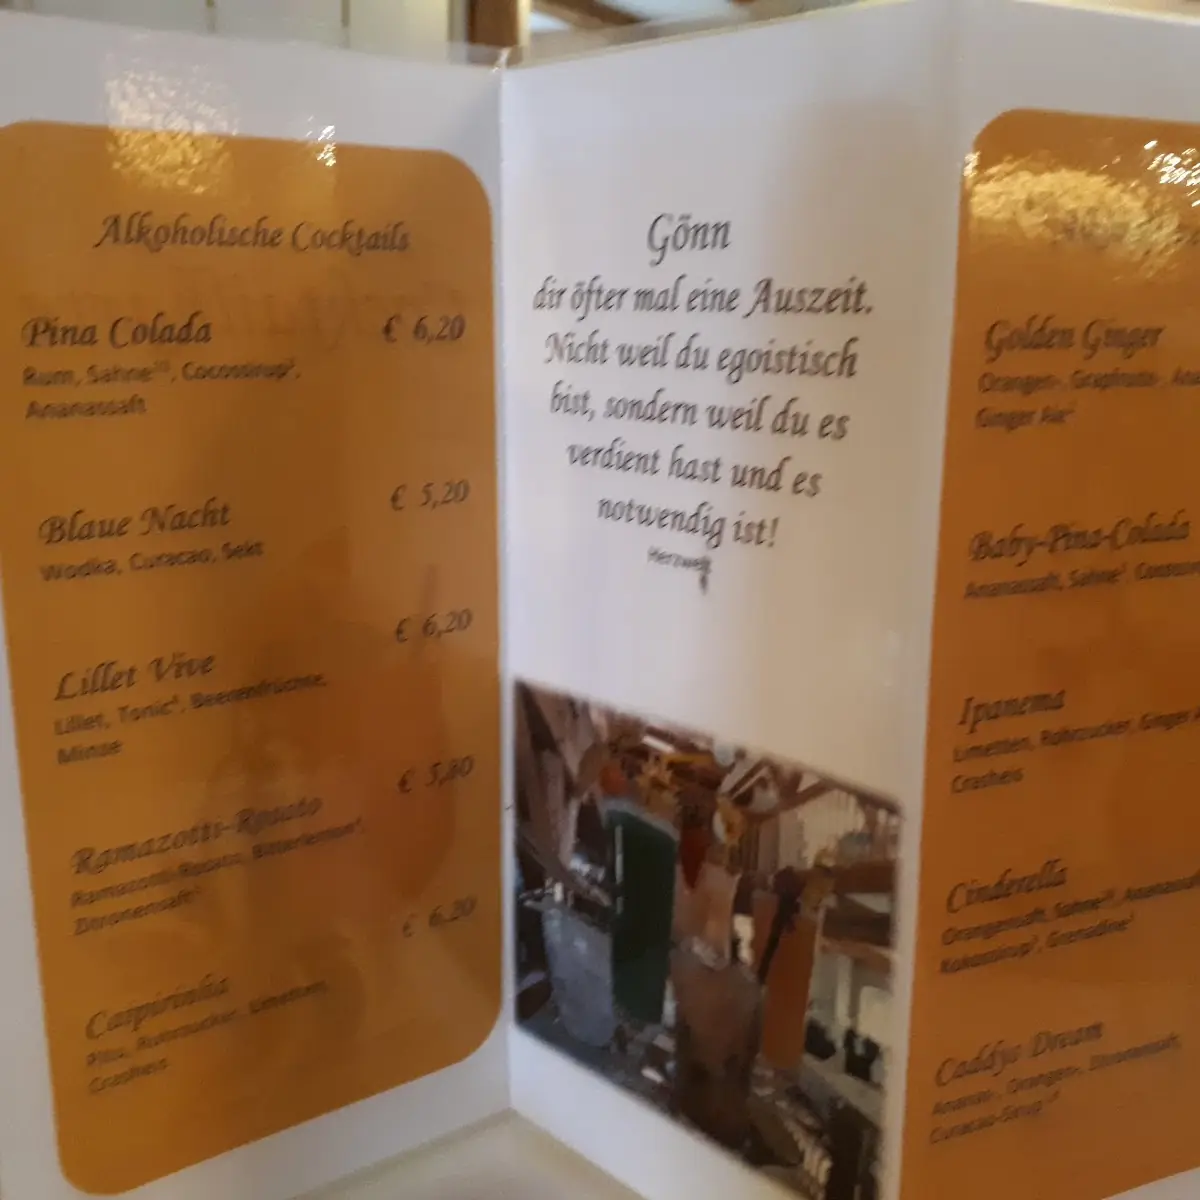 Alkoholische Cocktails
Pina Colada € 6,20
Rum, Sahne, Cocossirup,
Ananassaft
Blaue Nacht € 5,20
Wodka, Curacao, Sekt
Lillet Vive € 6,20
Lillet, Tonic, Beerenfrüchte,
Minze
Ramazotti-Rosato € 5,80
Ramazotti-Rosato, Bitterlemon,
Zitronensaft
Caipirinha € 6,20
Pitu, Rohrzucker, Limetten,
Crasheis
Gönn
dir öfter mal eine Auszeit.
Nicht weil du egoistisch
bist, sondern weil du es
verdient hast und es
notwendig ist!
Herzwelt
Golden Ginger
Orangen-, Grapfruts-,
Ginger Ale
Baby-Pina-Colada
Ananassaft, Sahne
Ipanema
Limetten, Rohrzucker, Ginger
Crasheis
Cinderella
Orangensaft, Sahne
Kokossirup, Grenadine
Caddys Dream
Ananas-, Orangen-, Zitronensaft,
Curacao-Sirup